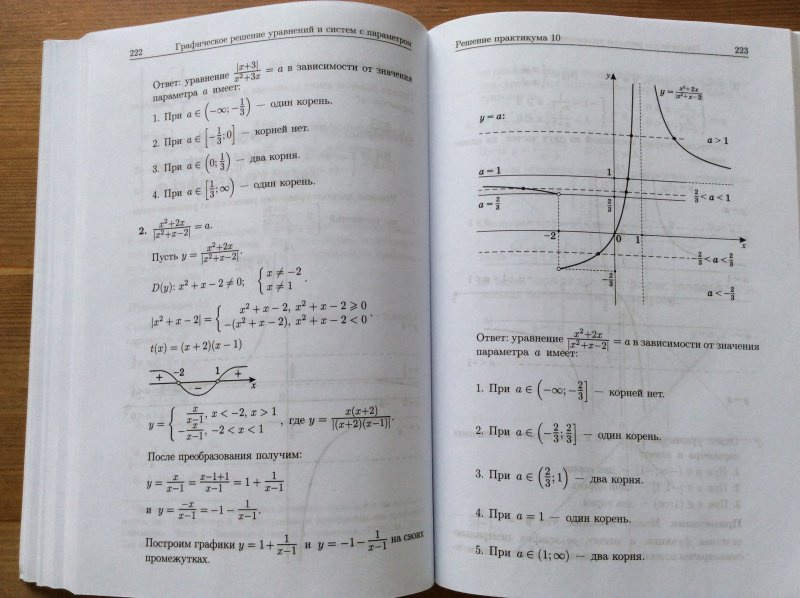 222 Графическое решение уравнений и систем с параметром
Ответ: уравнение |x+3|/(x²+3x) = a в зависимости от значения
параметра a имеет:
1. При a ∈ (−∞; −1/3) — один корень.
2. При a ∈ [−1/3; 0] — корней нет.
3. При a ∈ (0; 1/3) — два корня.
4. При a ∈ [1/3; ∞) — один корень.
2. (x²+2x)/|x²+x−2| = a.
Пусть y = (x²+2x)/|x²+x−2|.
D(y): x² + x − 2 ≠ 0; { x ≠ −2
x ≠ 1 .
|x² + x − 2| = { x² + x − 2, x² + x − 2 ⩾ 0
−(x² + x − 2), x² + x − 2 < 0 .
t(x) = (x + 2)(x − 1)
+ −2 − 1 + x
y = { x/(x−1), x < −2, x > 1
−x/(x−1), −2 < x < 1 , где y = x(x+2)/|(x+2)(x−1)|.
После преобразования получим:
y = x/(x−1) = (x−1+1)/(x−1) = 1 + 1/(x−1)
и y = −x/(x−1) = −1 − 1/(x−1).
Построим графики y = 1 + 1/(x−1) и y = −1 − 1/(x−1) на своих
промежутках.
Решение практикума 10 223
y
y = (x²+2x)/|x²+x−2|
y = a:
a > 1
a = 1
1
2/3 < a < 1
a = 2/3
2/3
−2
0
1
x
2/3 < a < 2/3
−2/3
a < −2/3
Ответ: уравнение (x²+2x)/|x²+x−2| = a в зависимости от значения
параметра a имеет:
1. При a ∈ (−∞; −2/3] — корней нет.
2. При a ∈ (−2/3; 2/3] — один корень.
3. При a ∈ (2/3; 1) — два корня.
4. При a = 1 — один корень.
5. При a ∈ (1; ∞) — два корня.